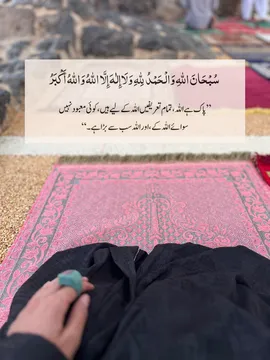 سُبْحَانَ اللهِ وَالْحَمْدُ لِلّٰهِ وَلَا إِلٰهَ إِلَّا اللهُ وَاللهُ أَكْبَرُ
”پاک ہے اللہ، تمام تعریفیں اللہ کے لیے ہیں، کوئی معبود نہیں
سوائے اللہ کے، اور اللہ سب سے بڑا ہے۔“